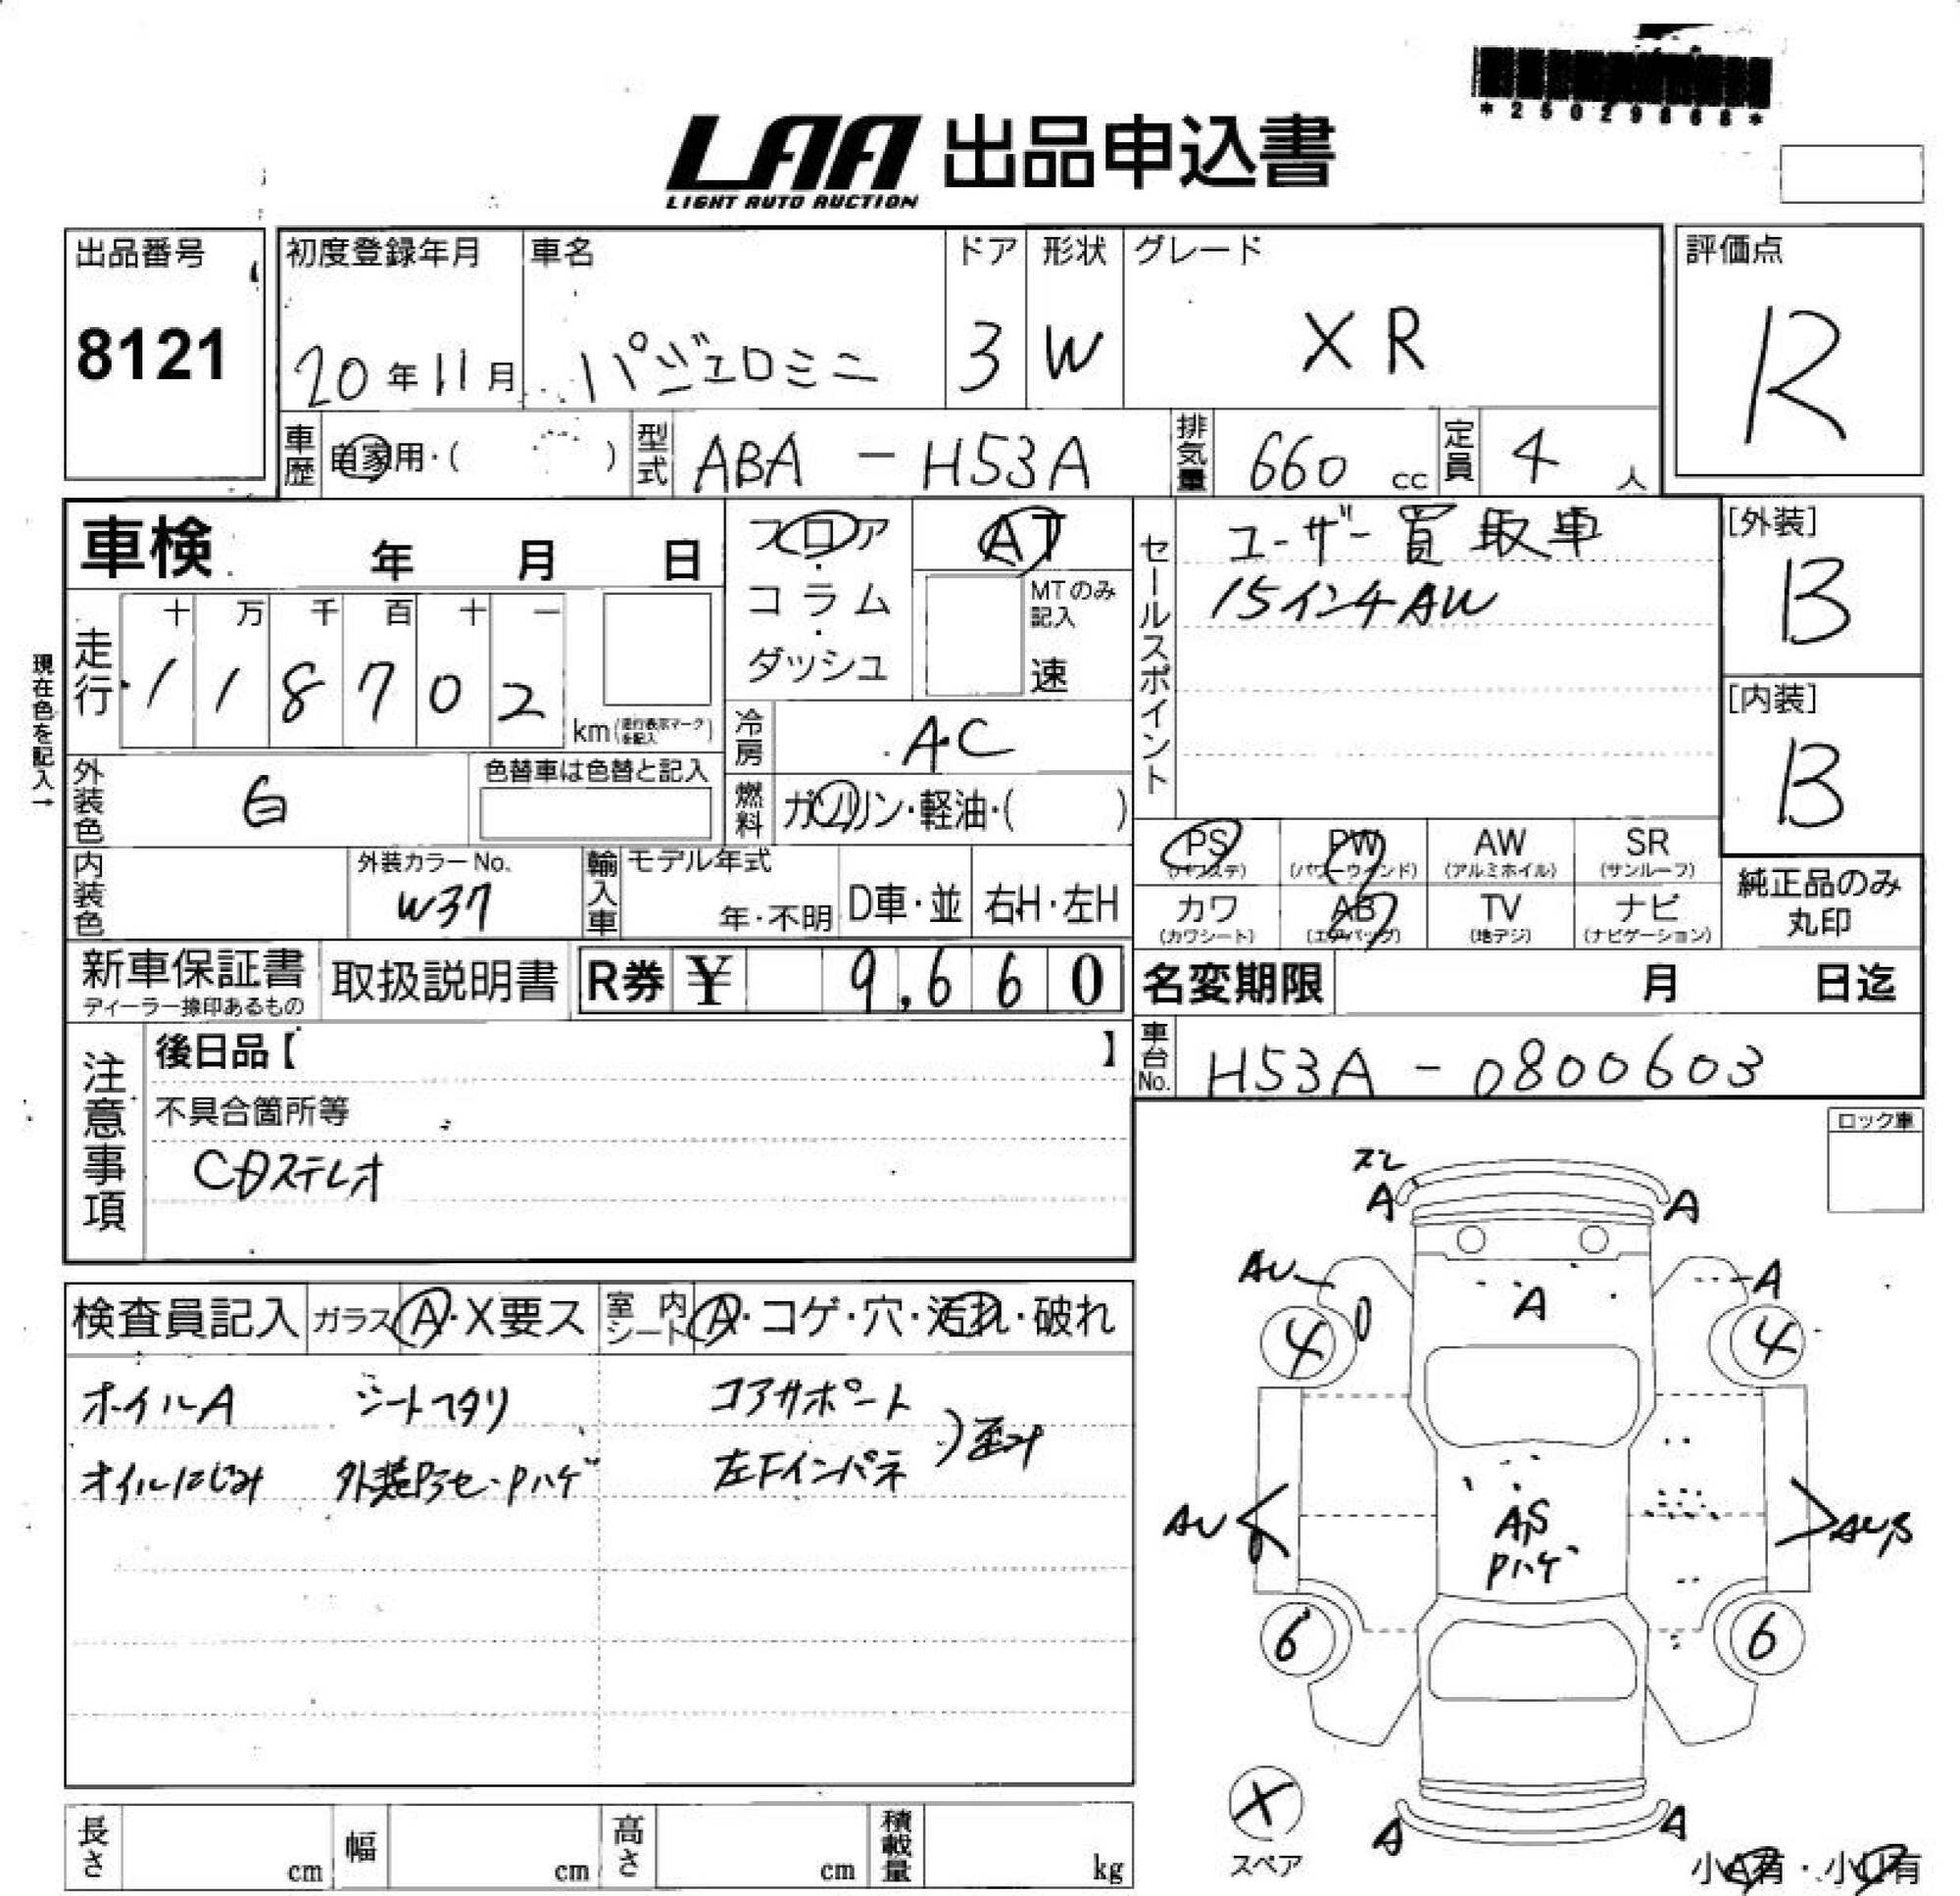 *25029868*
LAA 出品申込書
LIGHT AUTO AUCTION
出品番号
8121
初度登録年月
20年11月
車名
パジェロミニ
ドア
3
形状
W
グレード
XR
評価点
R
車歴
自家用・( )
型式
ABA - H53A
排気量
660 cc
定員
4 人
車検 年 月 日
フロア
・
コラム
・
ダッシュ
AT
MTのみ
記入
速
セールスポイント
ユーザー買取車
15インチAW
[外装]
B
[内装]
B
現在色を記入→
走行
十 万 千 百 十 一
1 1 8 7 0 2
km (走行表示マークを記入)
冷房
AC
外装色
白
色替車は色替と記入
燃料
ガソリン・軽油・( )
PS (パワステ)
PW (パワーウインド)
AW (アルミホイル)
SR (サンルーフ)
カワ (カワシート)
AB (エアバッグ)
TV (地デジ)
ナビ (ナビゲーション)
純正品のみ
丸印
内装色
外装カラーNo.
W37
輸入車
モデル年式
年・不明
D車・並
右H・左H
新車保証書
ディーラー捺印あるもの
取扱説明書
R券 ¥ 9,660
名変期限 月 日迄
車台No.
H53A - 0800603
注意事項
後日品【 】
不具合箇所等
CDステレオ
ロック車
検査員記入
ガラス A・X要ス
室内シート A・コゲ・穴・汚れ・破れ
オイルA シートヘタリ コアサポート
オイルにじみ 外装色アセ・Pハゲ 左Fインパネ
)歪み
ズレ
A A
AU A
A
4 4
AU
AS
Pハゲ
AUS
6 6
X
スペア
A A
小A有・小U有
長さ cm
幅 cm
高さ cm
積載量 kg